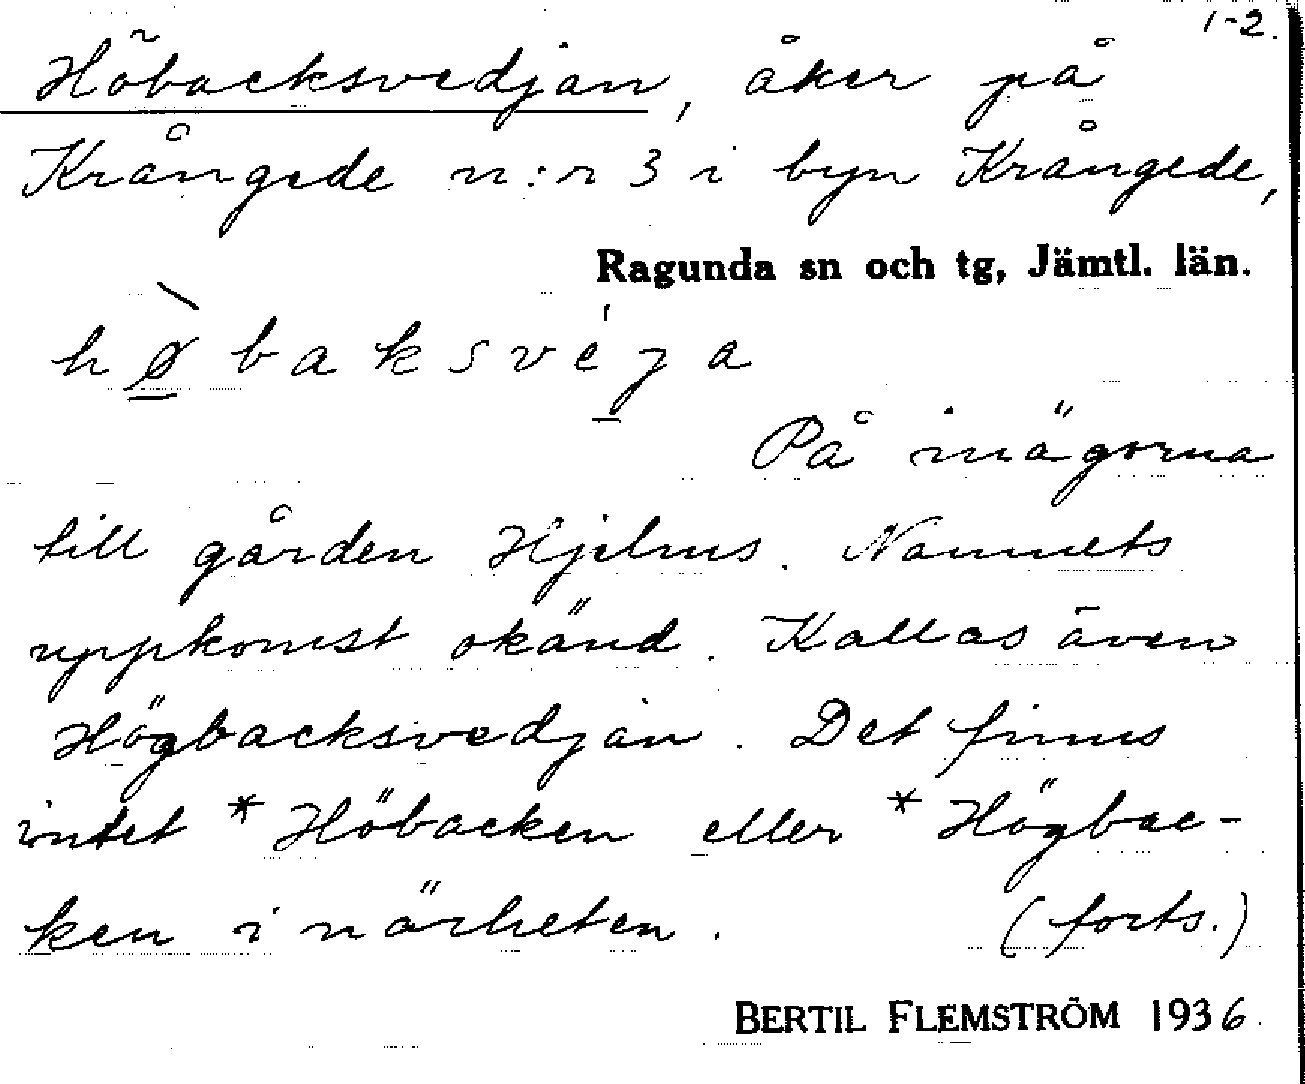 1-2.
Höbacksvedjan, åker på
Krångede n:r 3 i byn Krångede,
Ragunda sn och tg, Jämtl. län.
hø̀baksvéja
På inägorna
till gården Hjelms. Namnets
uppkomst okänd. Kallas även
Högbacksvedjan. Det finns
intet *Höbacken eller *Högbac-
ken i närheten. (forts.)
BERTIL FLEMSTRÖM 1936.